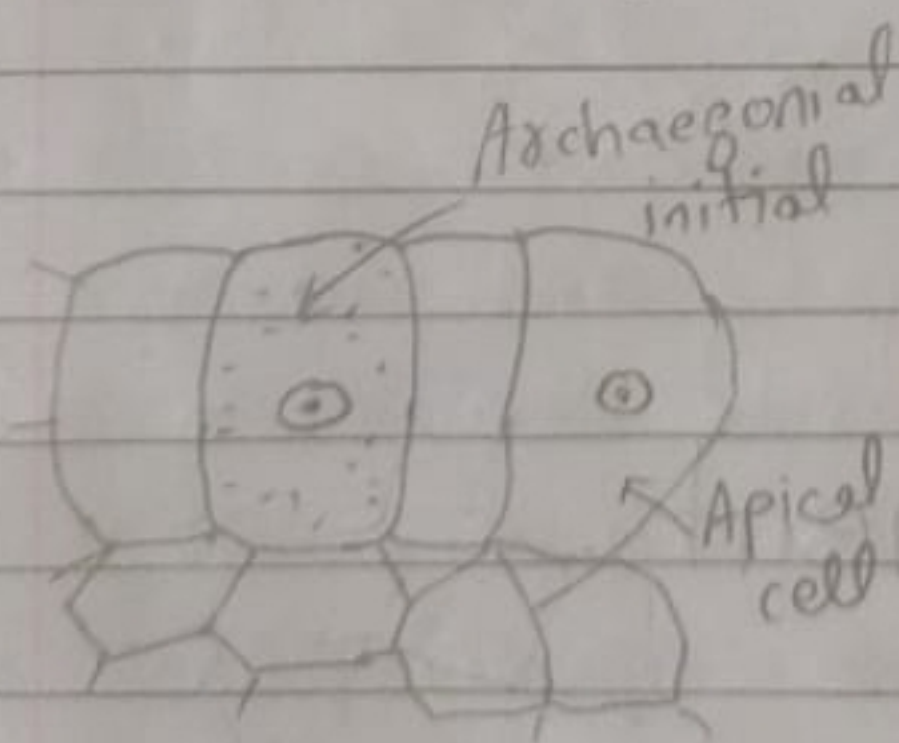 Archaegonial
initial
Apical
cell